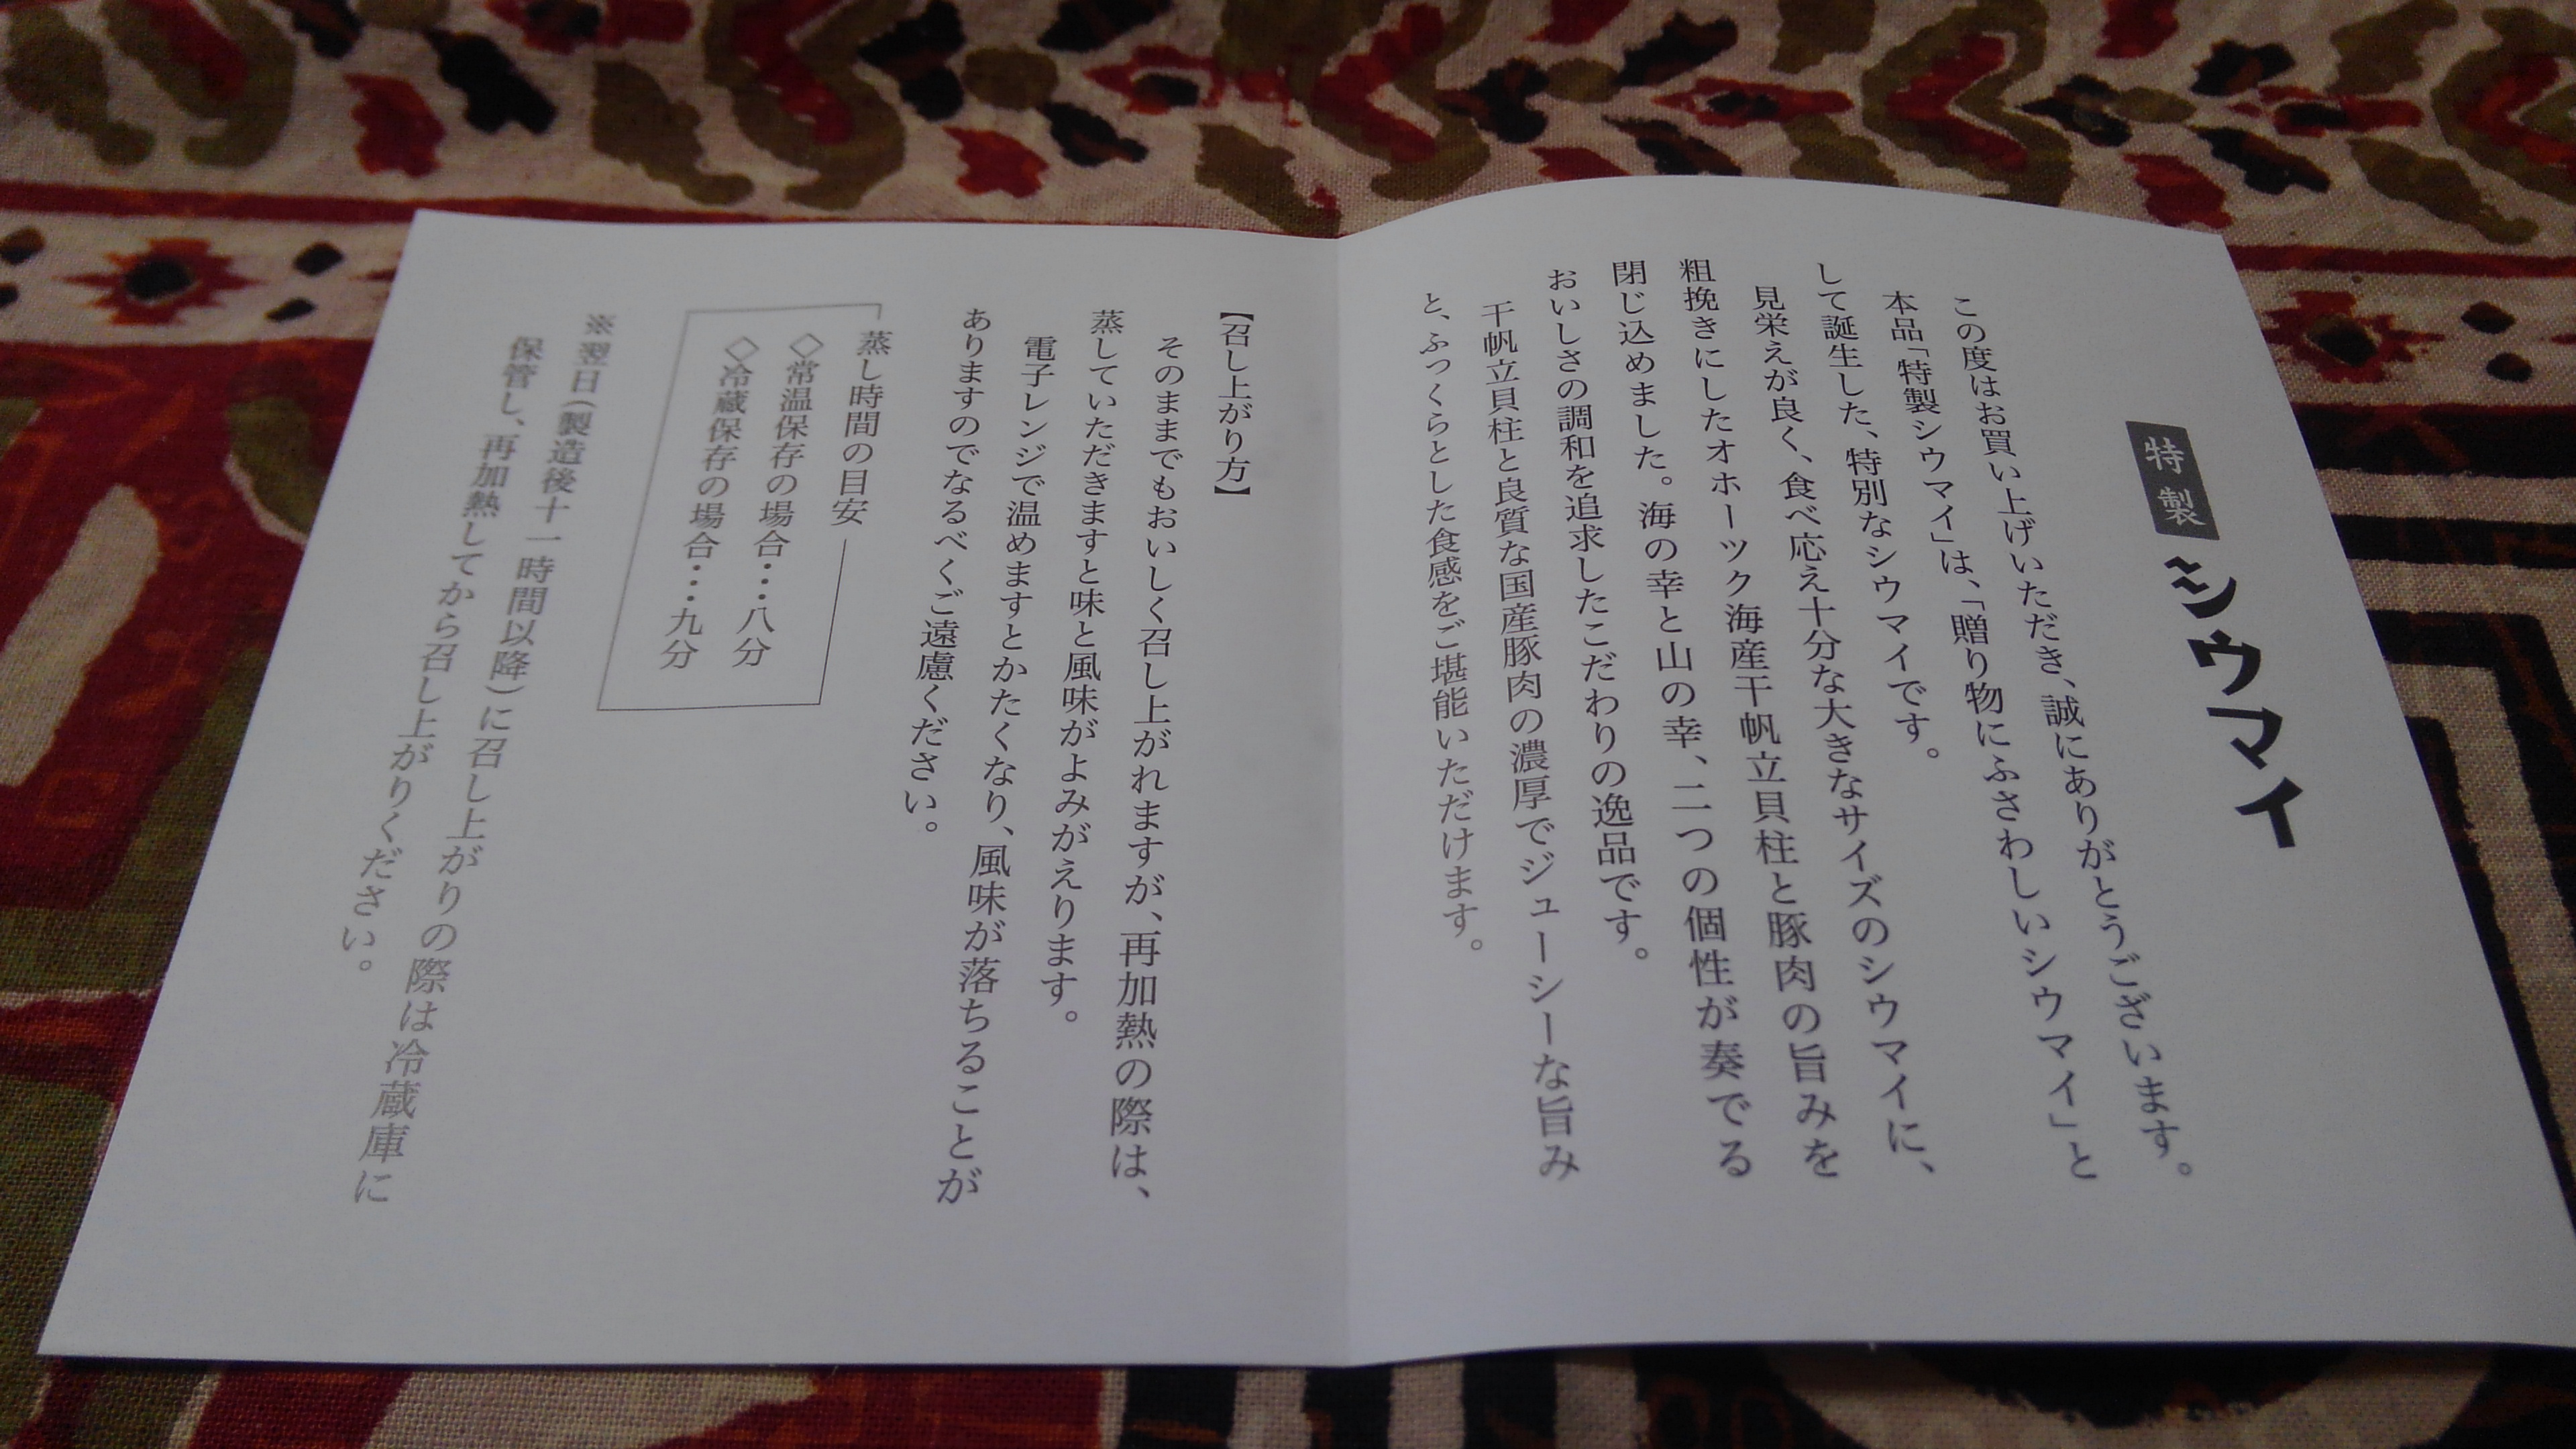 特製 シウマイ
この度はお買い上げいただき、誠にありがとうございます。
本品「特製シウマイ」は、「贈り物にふさわしいシウマイ」と
して誕生した、特別なシウマイです。
見栄えが良く、食べ応え十分な大きなサイズのシウマイに、
粗挽きにしたオホーツク海産干帆立貝柱と豚肉の旨みを
閉じ込めました。海の幸と山の幸、二つの個性が奏でる
おいしさの調和を追求したこだわりの逸品です。
干帆立貝柱と良質な国産豚肉の濃厚でジューシーな旨み
と、ふっくらとした食感をご堪能いただけます。
【召し上がり方】
そのままでもおいしく召し上がれますが、再加熱の際は、
蒸していただきますと味と風味がよみがえります。
電子レンジで温めますとかたくなり、風味が落ちることが
ありますのでなるべくご遠慮ください。
蒸し時間の目安
◇常温保存の場合・・・八分
◇冷蔵保存の場合・・・九分
※翌日(製造後十一時間以降)に召し上がりの際は冷蔵庫に
保管し、再加熱してから召し上がりください。